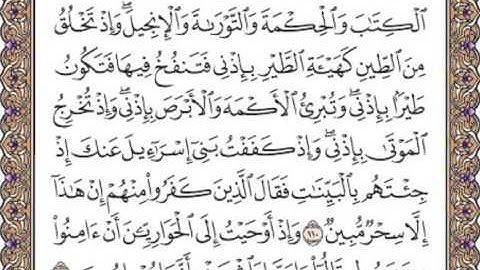 ٱلۡكِتَٰبَ وَٱلۡحِكۡمَةَ وَٱلتَّوۡرَىٰةَ وَٱلۡإِنجِيلَۖ وَإِذۡ تَخۡلُقُ
مِنَ ٱلطِّينِ كَهَيۡـَٔةِ ٱلطَّيۡرِ بِإِذۡنِي فَتَنفُخُ فِيهَا فَتَكُونُ
طَيۡرَۢا بِإِذۡنِيۖ وَتُبۡرِئُ ٱلۡأَكۡمَهَ وَٱلۡأَبۡرَصَ بِإِذۡنِيۖ وَإِذۡ تُخۡرِجُ
ٱلۡمَوۡتَىٰ بِإِذۡنِيۖ وَإِذۡ كَفَفۡتُ بَنِيٓ إِسۡرَٰٓءِيلَ عَنكَ إِذۡ
جِئۡتَهُم بِٱلۡبَيِّنَٰتِ فَقَالَ ٱلَّذِينَ كَفَرُواْ مِنۡهُمۡ إِنۡ هَٰذَآ
إِلَّا سِحۡرٞ مُّبِينٞ ١١٠ وَإِذۡ أَوۡحَيۡتُ إِلَى ٱلۡحَوَارِيِّـۧنَ أَنۡ ءَامِنُواْ